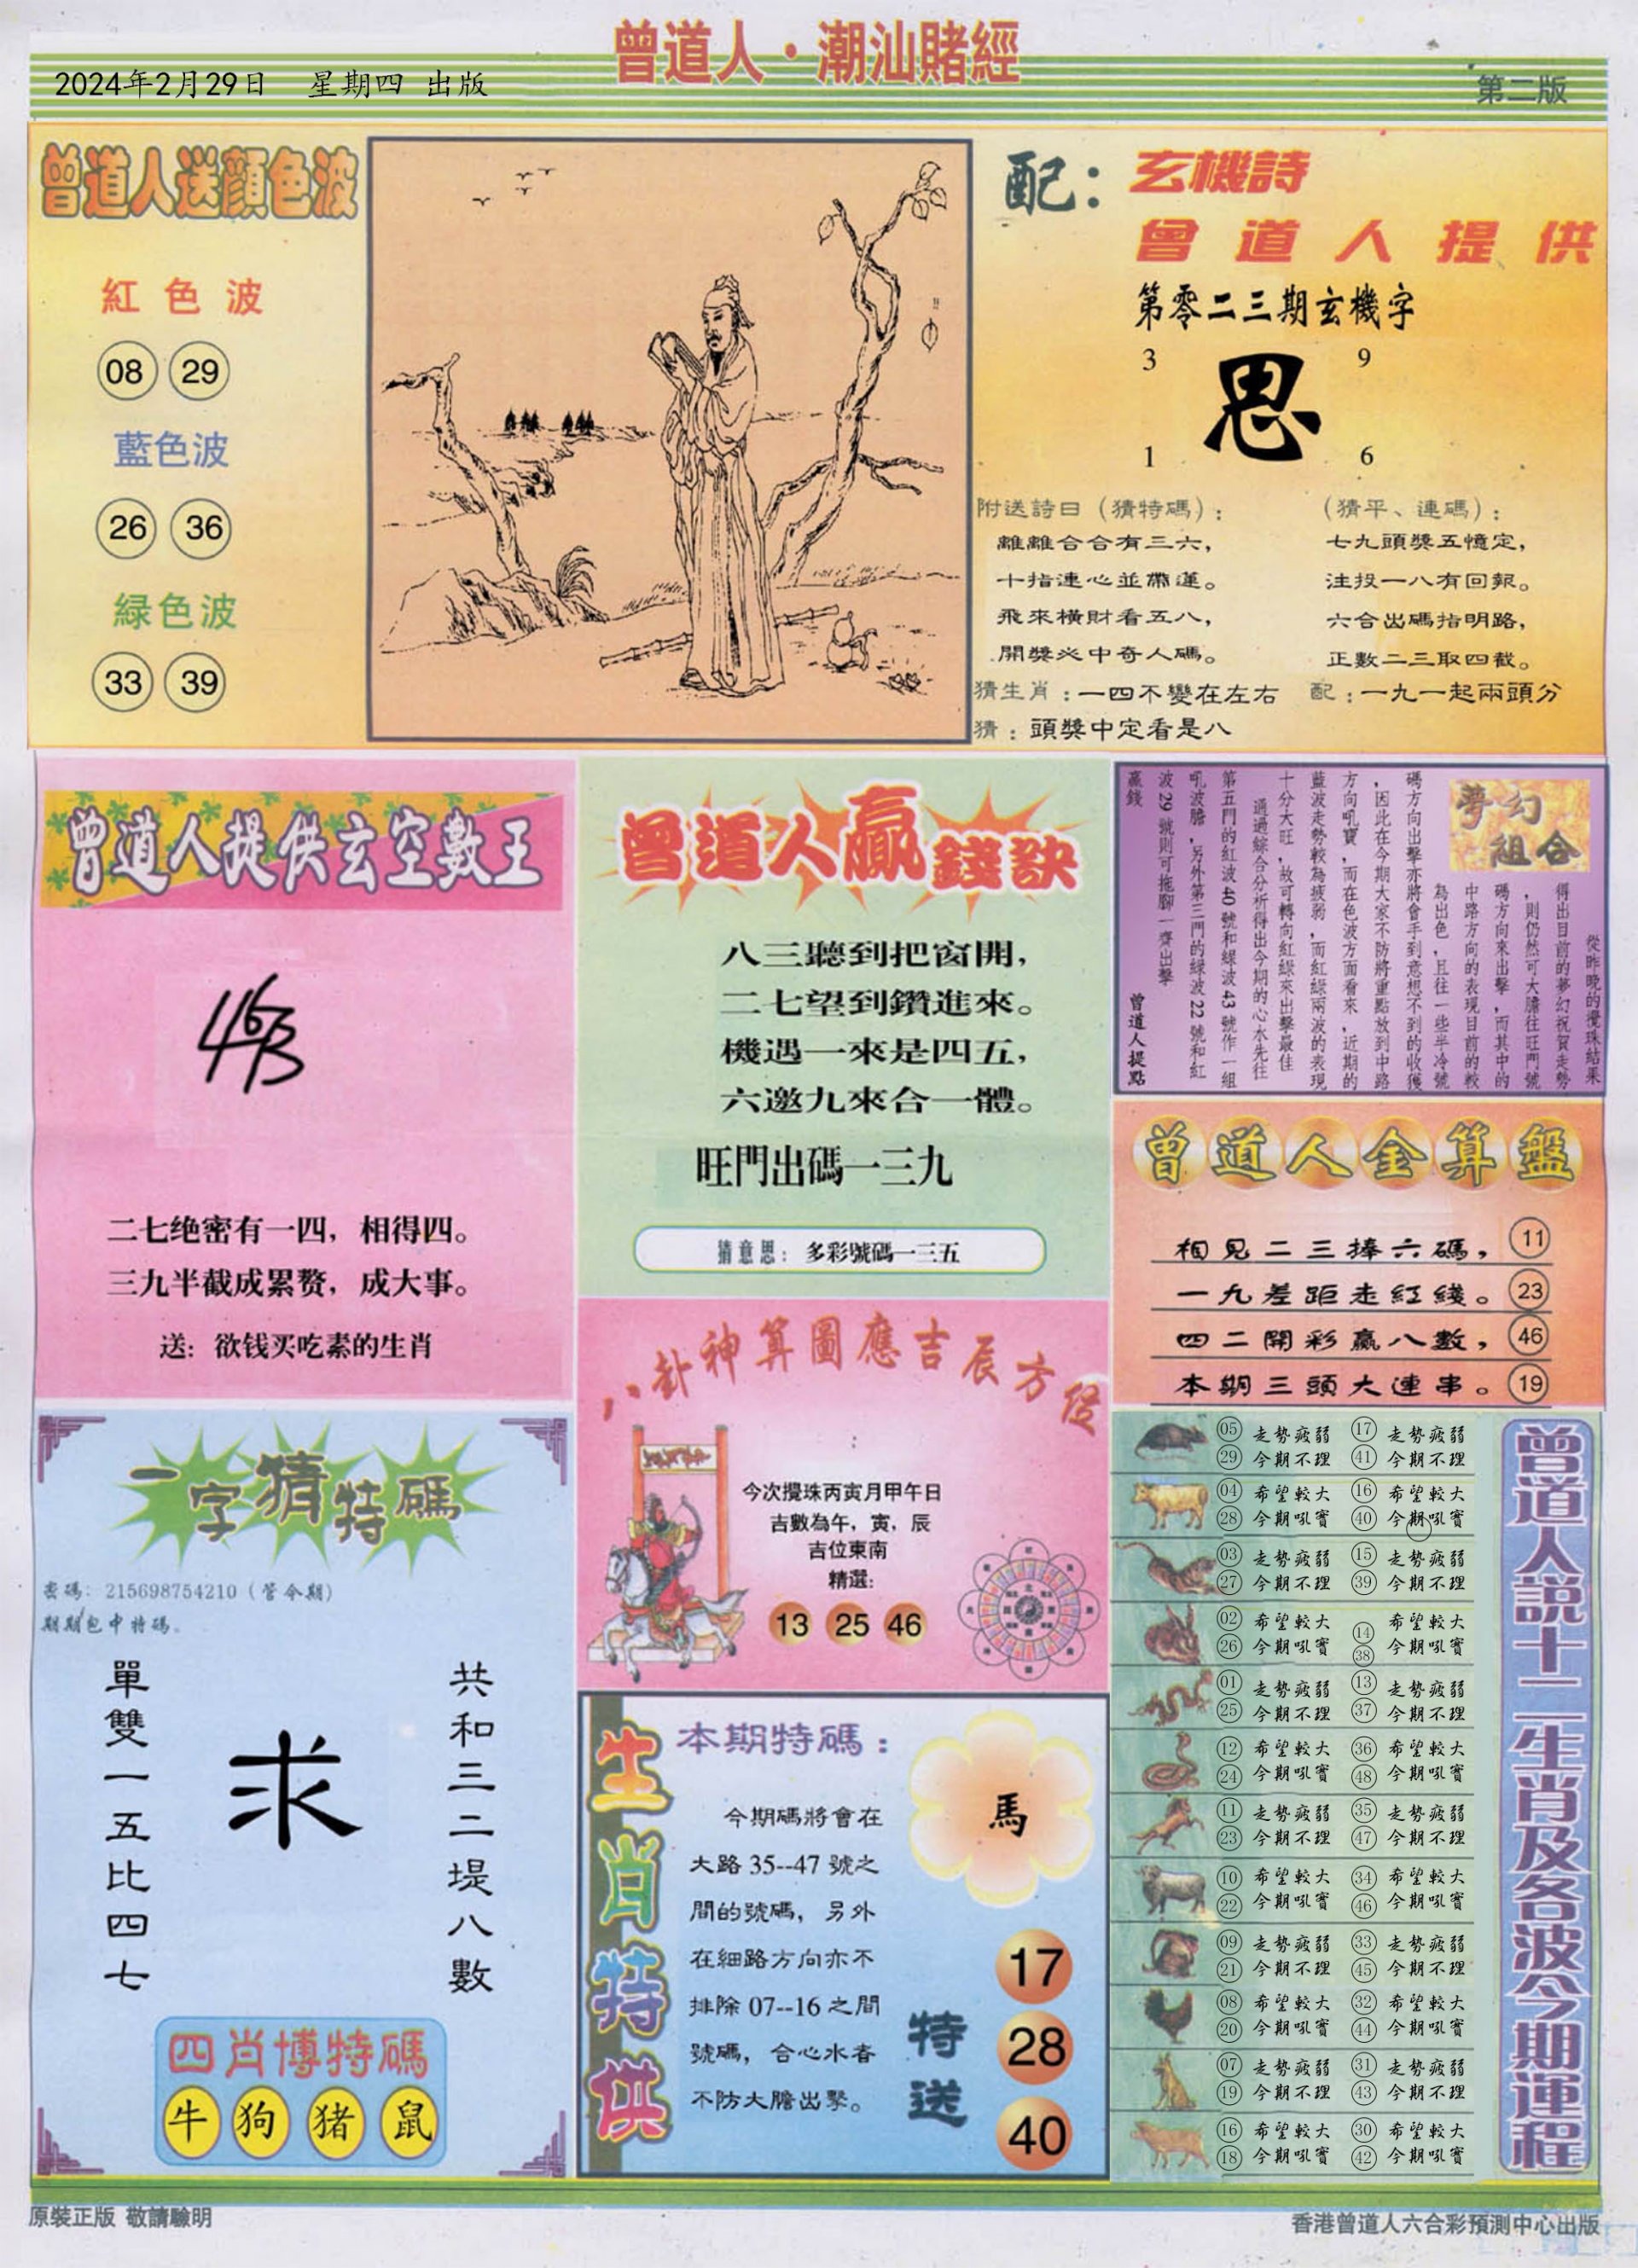 曾道人·潮汕賭經
2024年2月29日 星期四 出版
第二版
曾道人送顏色波
紅色波
08 29
藍色波
26 36
緑色波
33 39
配：玄機詩
曾道人提供
第零二三期玄機字
3 9
思
1 6
附送詩日（猜特碼）：
離離合合有三六，
十指連心並帶蓮。
飛來橫財看五八，
開獎必中奇人碼。
（猜平、連碼）：
七九頭獎五憶定，
注投一八有回報。
六合出碼指明路，
正數二三取四截。
猜生肖：一四不變在左右
配：一九一起兩頭分
猜：頭獎中定看是八
曾道人提供玄空數王
463
二七绝密有一四，相得四。
三九半截成累赘，成大事。
送：欲钱买吃素的生肖
曾道人贏錢訣
八三聽到把窗開，
二七望到鑽進來。
機遇一來是四五，
六邀九來合一體。
旺門出碼一三九
猜意思：多彩號碼一三五
夢幻組合
從昨晚的攪珠結果
得出目前的夢幻祝賀走勢
，則仍然可大膽往旺門號
碼方向來出擊，而其中的
中路方向的表現目前的較
為出色，且往一些半冷號
碼方向出擊亦將會手到意想不到的收獲
，因此在今期大家不防將重點放到中路
方向吼寶，而在色波方面看來，近期的
藍波走勢較為疲弱，而紅綠兩波的表現
十分大旺，故可轉向紅綠來出擊最佳
通過綜合分析得出今期的心水先往
第五門的紅波40號和綠波43號作一組
吼波膽，另外第三門的绿波22號和紅
波29號則可拖腳一齊出擊
贏錢
曾道人提點
曾道人金算盤
相見二三捧六碼， 11
一九差距走紅綫。 23
四二開彩贏八數， 46
本期三頭大連串。 19
一字猜特碼
密碼：215698754210（管令期）
期期包中特碼。
單雙一五比四七
求
共和三二堤八數
四肖博特碼
牛 狗 猪 鼠
八卦神算圖應吉辰方位
今次攪珠丙寅月甲午日
吉數為午，寅，辰
吉位東南
精選：
13 25 46
生肖特供
本期特碼：
今期碼將會在
大路35--47號之
間的號碼，另外
在細路方向亦不
排除07--16之間
號碼，合心水者
不防大膽出擊。
馬
特送
17
28
40
曾道人説十二生肖及各波今期運程
05 走勢疲弱 17 走勢疲弱
29 今期不理 41 今期不理
04 希望較大 16 希望較大
28 今期吼實 40 今期吼實
03 走勢疲弱 15 走勢疲弱
27 今期不理 39 今期不理
02 希望較大 14 希望較大
26 今期吼實 38 今期吼實
01 走勢疲弱 13 走勢疲弱
25 今期不理 37 今期不理
12 希望較大 36 希望較大
24 今期吼實 48 今期吼實
11 走勢疲弱 35 走勢疲弱
23 今期不理 47 今期不理
10 希望較大 34 希望較大
22 今期吼實 46 今期吼實
09 走勢疲弱 33 走勢疲弱
21 今期不理 45 今期不理
08 希望較大 32 希望較大
20 今期吼實 44 今期吼實
07 走勢疲弱 31 走勢疲弱
19 今期不理 43 今期不理
16 希望較大 30 希望較大
18 今期吼實 42 今期吼實
原裝正版 敬請驗明
香港曾道人六合彩預測中心出版